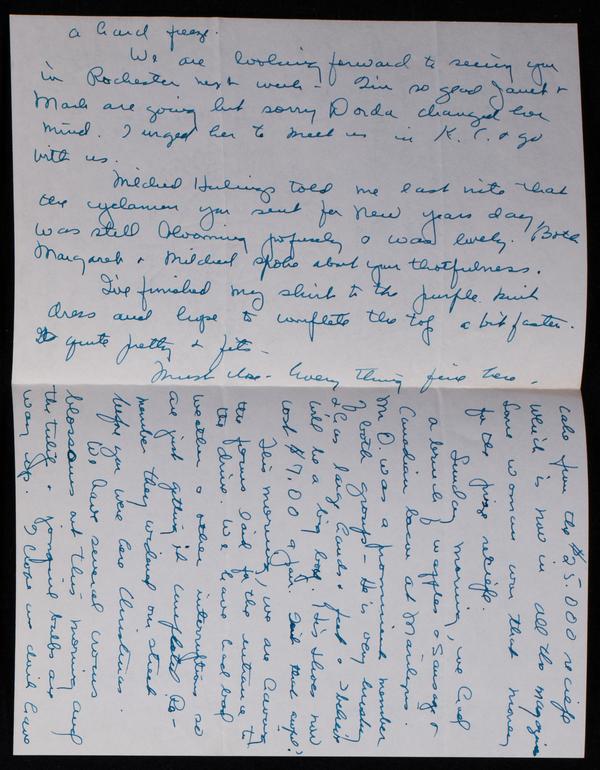 cake from the $25,000 recipe
which is now in all the magazines
Some woman won that money
for the prize recipe.
Sunday morning, we had
a brunch, waffles & sausage &
Canadian bacon at Marilyns.
Mr. D. was a prominent member
of both groups - He is very husky
& has large hands & feet & I believe
will be a big boy. His shoes now
cost $7.00 a pair. Isn't that awful?
This morning, we are having
the forms laid for the entrance to
the drive. We have had bad
weather & other interruptions so
are just getting it completed. Re-
member they worked on street
before you were here Christmas.
We have several crocus
blossoms out this morning and
the tulip & jonquil bulbs are
way up. I hope we don't have
a hard freeze.
We are looking forward to seeing you
in Rochester next week - I'm so glad Janet &
Mark are going but sorry Dorda changed her
mind. I urged her to meet us in K.C. & go
with us.
Mildred told me last nite that
the cyclamen you sent for New Years day
was still blooming profusely & was lovely. Both
Margaret & Mildred spoke about your thotfulness.
I've finished my skirt to the purple knit
dress and hope to complete the top a bit faster.
quite pretty & fits -
Must close - Every thing fine here.